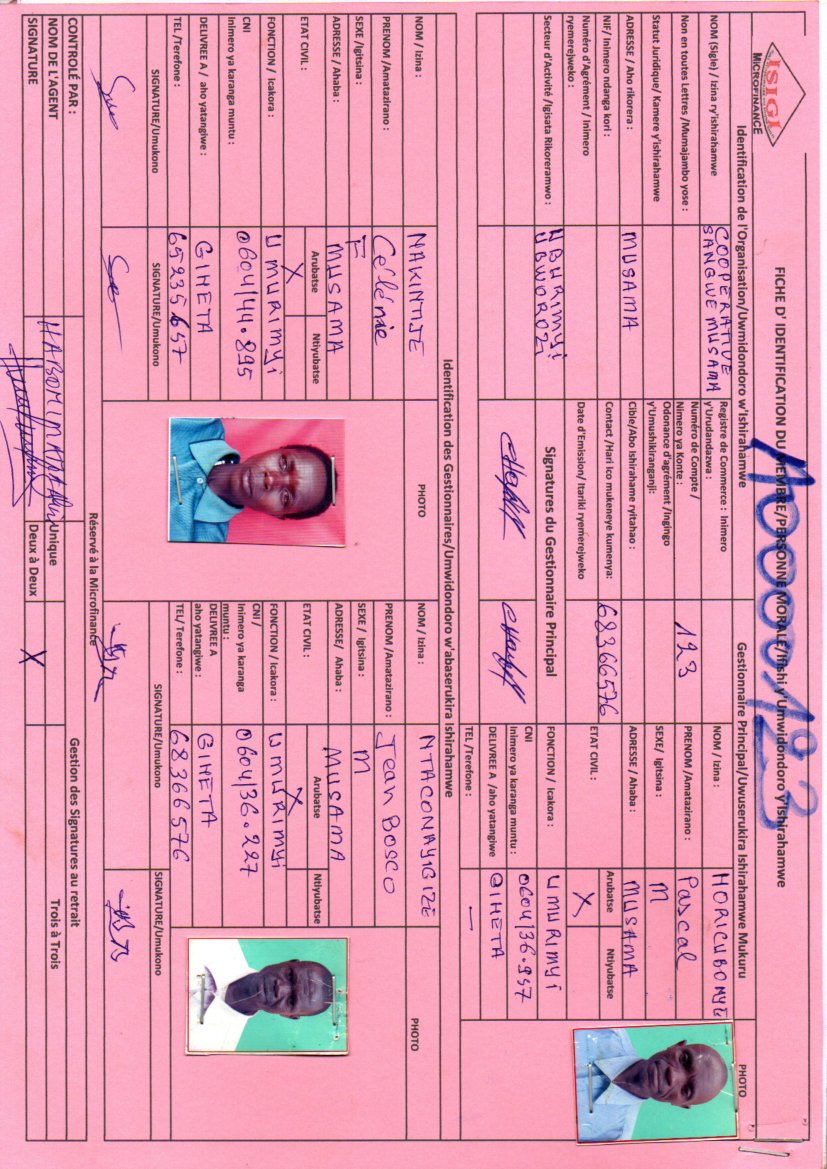 ISIGI
MICROFINANCE
FICHE D' IDENTIFICATION DU MEMBRE/PERSONNE MORALE/Ifishi y'Umwidondoro y'Ishirahamwe
N0000123
Identification de l'Organisation/Uwmidondoro w'Ishirahamwe
NOM (Sigle) / Izina ry'ishirahamwe
COOPERATIVE
SANGWE MUSAMA
Non en toutes Lettres /Mumajambo yose :
Statut Juridique/ Kamere y'ishirahamwe
ADRESSE / Aho rikorera :
MUSAMA
NIF/ Inimero ndanga kori :
Numéro d'Agrément / Inimero
ryemerejweko :
Secteur d'Activité /Igisata Rikoreramwo :
UBURIMYI
UBWOROZI
Registre de Commerce : Inimero
y'Urudandazwa :
Numéro de Compte /
Nimero ya Konte :
123
Odonance d'agrément /Ingingo
y'Umushikiranganji:
Cible/Abo ishirahame ryitaho :
Contact /Hari ico mukeneye kumenya:
68366576
Date d'Emission/ Itariki ryemerejweko
Signatures du Gestionnaire Principal
Gestionnaire Principal/Uwuserukira Ishirahamwe Mukuru
PHOTO
NOM / Izina :
HORICUBONYE
PRENOM /Amatazirano :
Pascal
SEXE/ Igitsina :
M
ADRESSE / Ahaba :
MUSAMA
ETAT CIVIL :
Arubatse
Ntiyubatse
X
FONCTION / Icakora :
UMURIMYI
CNI
Inimero ya karanga muntu :
0604/36.957
DELIVREE A /aho yatangiwe
GIHETA
TEL /Terefone :
Identification des Gestionnaires/Umwidondoro w'abaserukira ishirahamwe
NOM / Izina :
NAKINTIJE
PHOTO
PRENOM /Amatazirano :
Célénie
SEXE /Igitsina :
F
ADRESSE / Ahaba :
MUSAMA
ETAT CIVIL :
Arubatse
Ntiyubatse
X
FONCTION / Icakora :
UMURIMYI
CNI
Inimero ya karanga muntu :
0604/44.895
DELIVREE A / aho yatangiwe :
GIHETA
TEL /Terefone :
65235657
SIGNATURE/Umukono
SIGNATURE/Umukono
NOM / Izina :
NTACONAYIGIZE
PHOTO
PRENOM /Amatazirano :
Jean BOSCO
SEXE / Igitsina :
M
ADRESSE/ Ahaba :
MUSAMA
ETAT CIVIL :
Arubatse
Ntiyubatse
X
FONCTION / Icakora :
UMURIMYI
CNI /
Inimero ya karanga
muntu :
0604/36.227
DELIVREE A
aho yatangiwe :
GIHETA
TEL/ Terefone :
68366576
SIGNATURE/Umukono
SIGNATURE/Umukono
Réservé à la Microfinance
CONTROLÉ PAR :
NOM DE L'AGENT
SIGNATURE
Gestion des Signatures au retrait
Unique
Deux à Deux
X
Trois à Trois